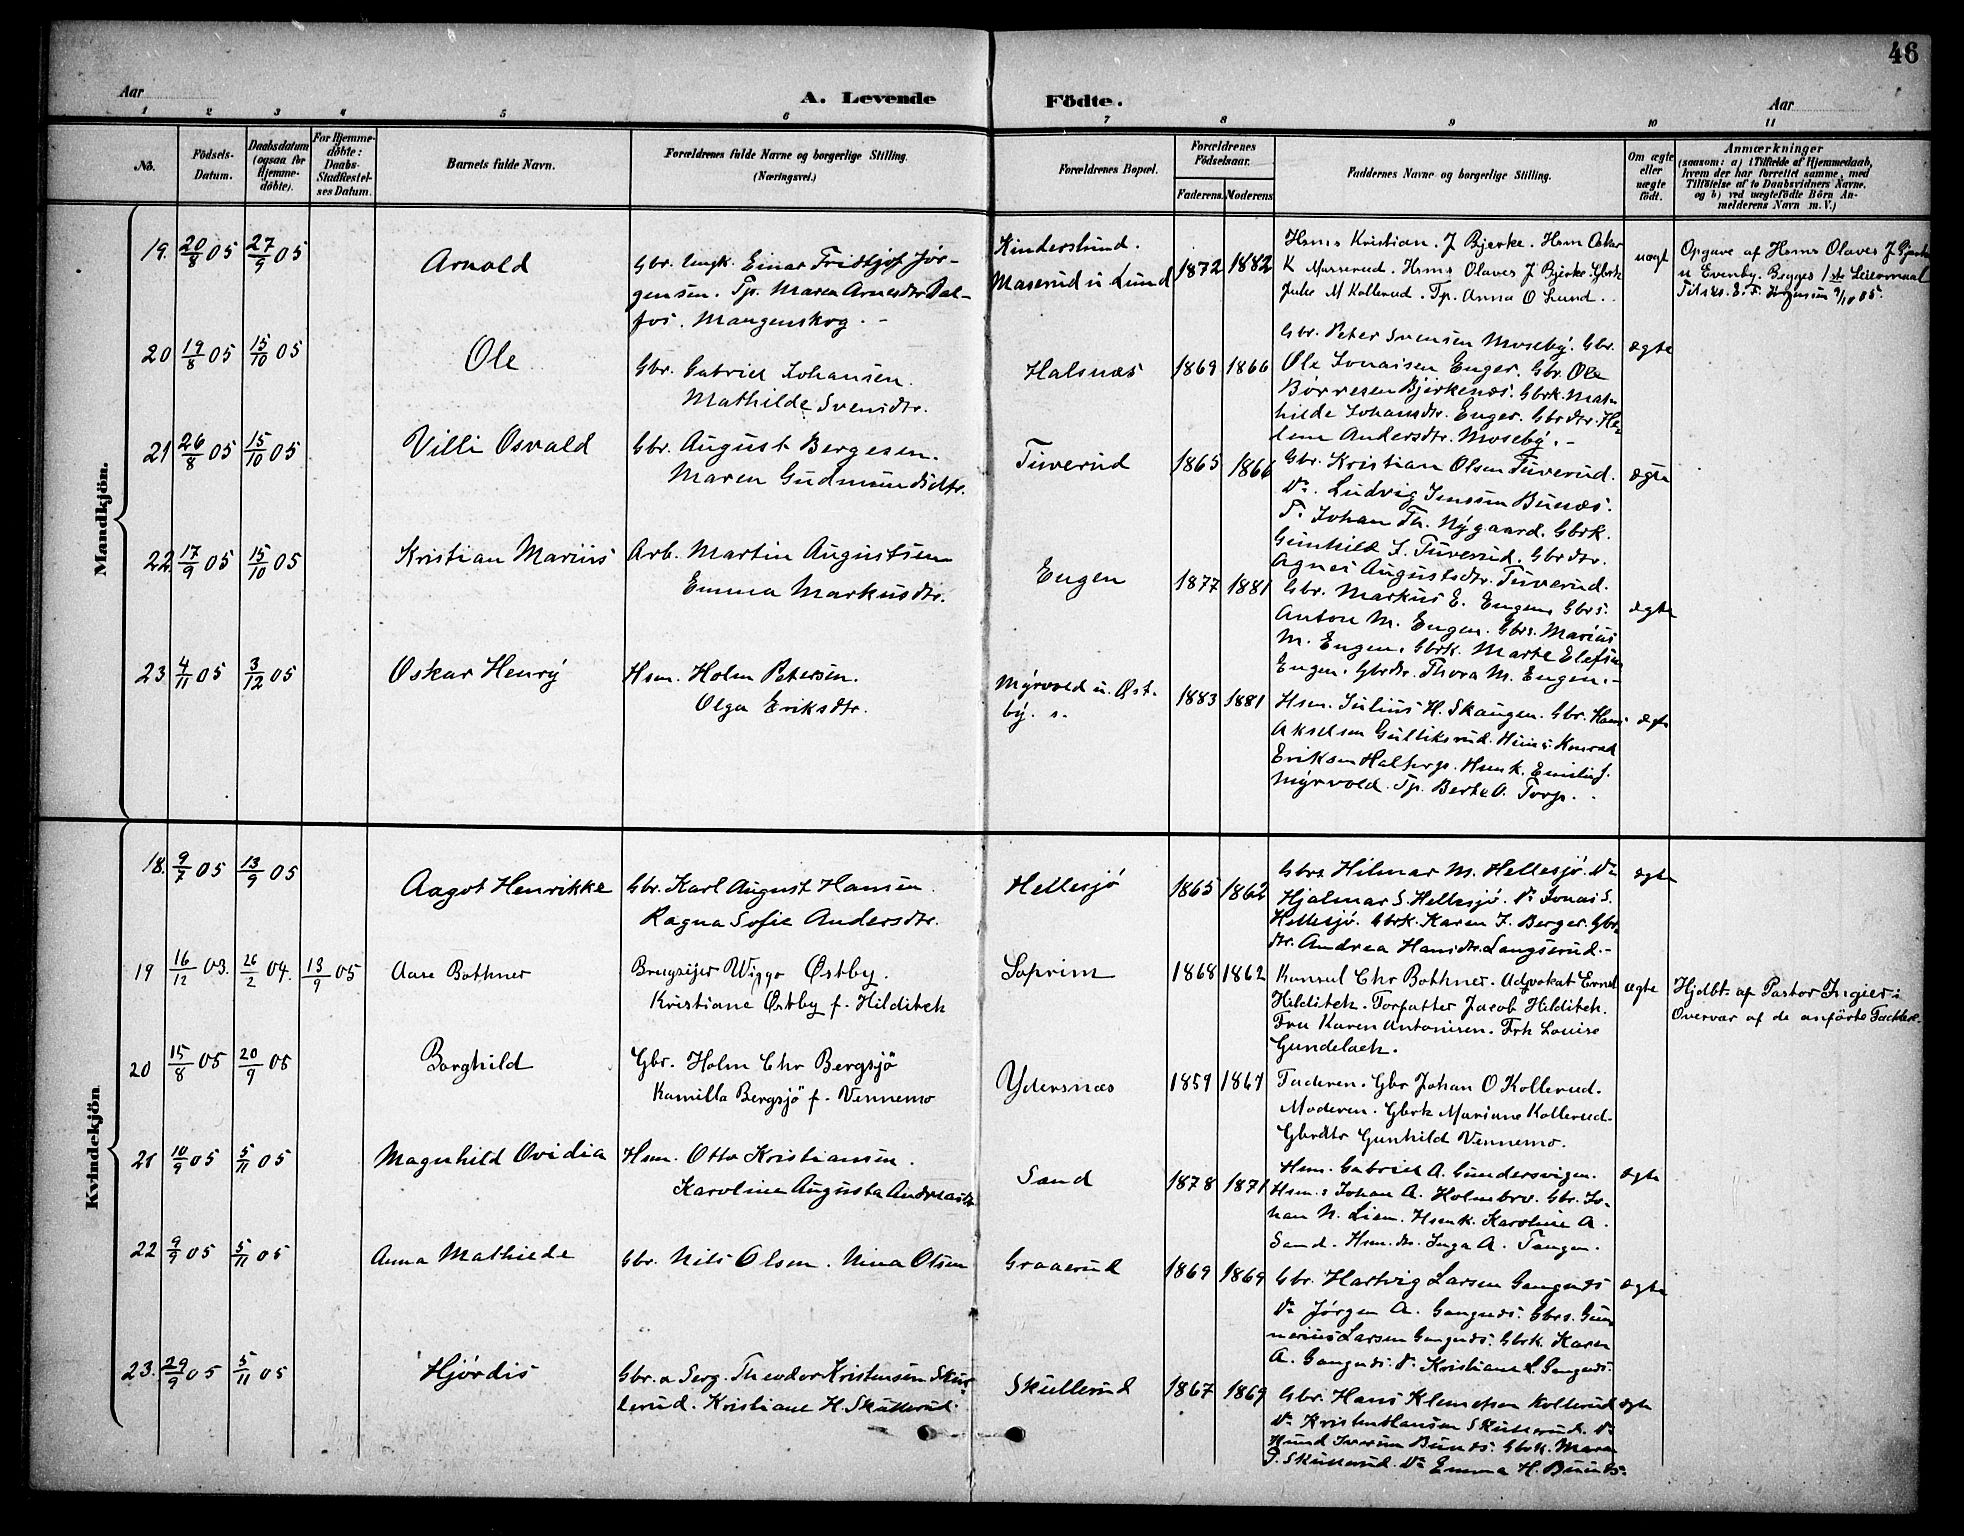 46
Aar
A. Levende
Födte.
Aar
1 2 3 4 5 6 7 8 9 10 11
No.
Födsels-
Datum.
Daabsdatum
(ogsaa for
Hjemme-
döbte).
For Hjemme-
döbte:
Daabs-
Stadfæstel-
ses Datum.
Barnets fulde Navn.
Forældrenes fulde Navne og borgerlige Stilling.
(Næringsvei.)
Forældrenes Bopæl.
Forældrenes
Födselsaar.
Faderens.
Moderens.
Faddernes Navne og borgerlige Stilling.
Om ægte
eller
uægte
födt.
Anmærkninger
(saasom: a) i Tilfælde af Hjemmedaab,
hvem der har forrettet samme, med
Tilföielse af to Daabsvidners Navne,
og b) ved uægtefödte Börn An-
melderens Navn m. V.)
Mandkjön.
19. 20/8 05 27/9 05
Arnold
Gbr. Ungk. Einar Fridtjof Jör-
gensen. Tp. Maren Arnesdtr Dal-
fos. Mangenskog. -
Kinderslund.
Maserud u Lund
1872 1882
Hsms Kristian. J Bjerke. Hsm Oskar
K Masserud. Hsms Olaves J Bjerke. Gbrk
Julie M Kollerud. Tp. Anna O Lund.
uægt
Opgave af Hsms Olaves J Bjerke
u Evenby. Begges 1ste Leiermaal
Tilsks. E. F. Jörgensen 9/10 05.
20 19/8 05 15/10 05
Ole
Gbr. Gabriel Johansen.
Mathilde Svensdtr.
Halsnæs
1869 1866
Gbr. Peter Svensen Moseby. Gbr.
Ole Jonassen Enger. Gbr. Ole
Borresen Bjerkenæs. Gbrk. Mat-
hilde Johansdtr. Enger. Gbrdtr. He-
lene Andersdtr. Moseby. -
ægte
21 26/8 05 15/10 05
Villi Osvald
Gbr. August Bergesen.
Maren Gudmundsdtr.
Tuverud
1865 1866
Gbr. Kristian Olsen Tuverud.
Do. Ludvig Jenssen Bunæs.
T. Johan Th. Nygaard. Gbrk.
Gunhild J. Tuverud. Gbrdtr.
Agnes Augustsdtr. Tuverud.
ægte
22 17/9 05 15/10 05
Kristian Marius
Arb. Martin Augustsen
Emma Markusdtr.
Engen
1877 1881
Gbr. Markus E. Engen. Gbrs.
Anton M. Engen. Gbrs. Marius
M. Engen. Gbrk. Marte Elefsen
Engen. Gbrdtr. Thora M. Engen. -
ægte
23 4/11 05 3/12 05
Oskar Henry
Hsm. Holm Petersen.
Olga Eriksdtr.
Myrvold u. Øst-
by. s.
1883 1881
Hsm. Julius H. Skaugen. Gbr. Hans
Akselsen Gulliksrud. Hsms Konrad
Eriksen Haltorp. Hsmk. Emilie J.
Myrvold. Tp. Berte A. Torp. -
ægte
Kvindekjön
18. 9/7 05 13/9 05
Aagot Henrikke
Gbr. Karl August Hansen.
Ragna Sofie Andersdtr.
Hellesjö
1865 1862
Gbrs Hilmar M. Hellesjö. Do
Hjalmar S. Hellesjö. Do Jonas S.
Hellesjö. Gbrk. Karen J. Berger. Gbr
dtr. Andrea Hansdtr. Langserud. -
ægte
19 16/12 03. 26/2 04. 13/9 05
Aase Bothner
Brugseier Wiggo Østby.
Kristiane Østby f. Hilditch
Soprim
1868 1862
Konsul Chr Bothner. Advokat Ernst
Hilditch. Forfatter Jacob Hilditch.
Fru Karen Antonisen. Frk Louise
Gundelach.
ægte
Hjdbt. af Pastor Ingier i
Overvær af de anförte Faddere.
20 15/8 05 20/9 05
Borghild
Gbr. Holm Chr Bergsjö
Kamilla Bergsjö f. Vennemo
Ydersnæs
1859 1867
Faderen. Gbr Johan O Kollerud.
Moderen. Gbrk Mariane Kollerud.
Gbrdtr Gunhild Vennemo.
21 10/9 05 5/11 05
Magnhild Ovidia
Hsm. Otto Kristiansen.
Karoline Augusta Andreasdtr
Sand
1878 1871
Hsm. Gabriel A. Gundersvigen.
Hsm.s Johan A. Holmbro. Gbr. Jo-
han N. Lien. Hsmk. Karoline A.
Sand. Hsm.dtr. Inga A. Tangen.
ægte
22 9/9 05 5/11 05
Anna Mathilde
Gbr. Nils Olsen. Nina Olsen
Graaerud
1869 1869
Gbr. Hartvig Larsen Gangnæs
Do Jørgen A. Gangnæs. Gbrs. Gun-
nerius Larsen Gangnæs. Gbrk. Karen
A. Gangnæs. Do Kristiane L. Gangnæs.
ægte
23. 29/9 05 5/11 05
Hjördis
Gbr. & Serg. Theodor Kristensen Skul-
lerud. Kristiane H. Skullerud.
Skullerud
1867 1869
Gbr. Hans Klemetsen Kollerud
Do Kristen Hansen Skullerud. Do
Iversen Bunæs. Gbrk. Maren
P. Skullerud. Do Emma H. Bunæs.
ægte